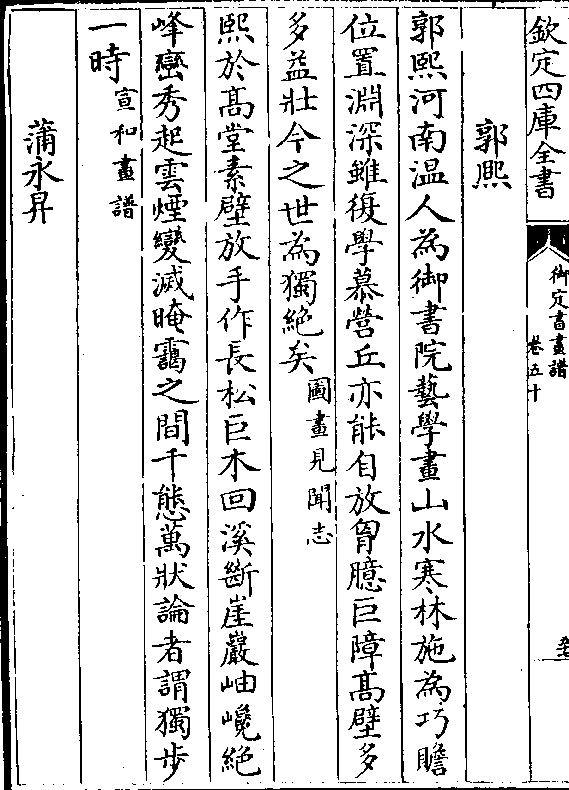 欽定四庫全書
御定書畫譜
卷五十
郭熙
郭熙河南温人為御書院藝學畫山水寒林施為巧贍
位置淵深雖復學慕營丘亦能自放胷臆巨障髙壁多
多益壯今之世為獨絶矣圖畫見聞志
熙於髙堂素壁放手作長松巨木回溪斷崖巖岫巉絶
峰巒秀起雲煙變滅晻靄之間千態萬狀論者謂獨步
一時宣和畫譜
蒲永昇